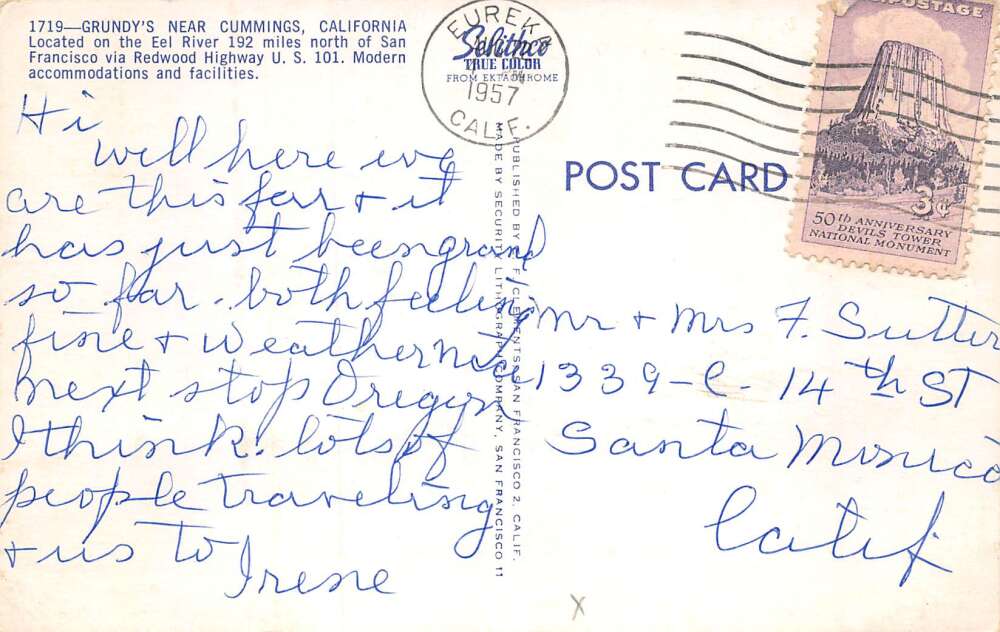 1719—GRUNDY'S NEAR CUMMINGS, CALIFORNIA
Located on the Eel River 192 miles north of San
Francisco via Redwood Highway U. S. 101. Modern
accommodations and facilities.
Hi
well here we
are this far + it
has just been grand
so far. both feeling
fine + weather nice
next stop Oregon
I think. lots of
people traveling
+ us to
Irene
EUREKA
1957
CALIF.
Selithco
TRUE COLOR
FROM EKTACHROME
PUBLISHED BY F. CLEMENTS, SAN FRANCISCO 2, CALIF.
MADE BY SECURITY LITHOGRAPH COMPANY, SAN FRANCISCO 11
POST CARD
POSTAGE
3¢
50th ANNIVERSARY
DEVILS TOWER
NATIONAL MONUMENT
Mr + Mrs F. Sutter
1339-C- 14th ST
Santa Monica
Calif
X